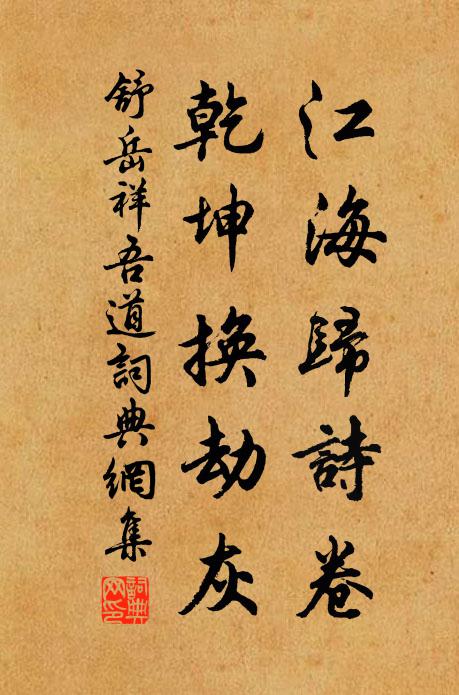 江海歸詩卷
乾坤換劫灰
舒岳祥吾道詞典網集
詞典網印